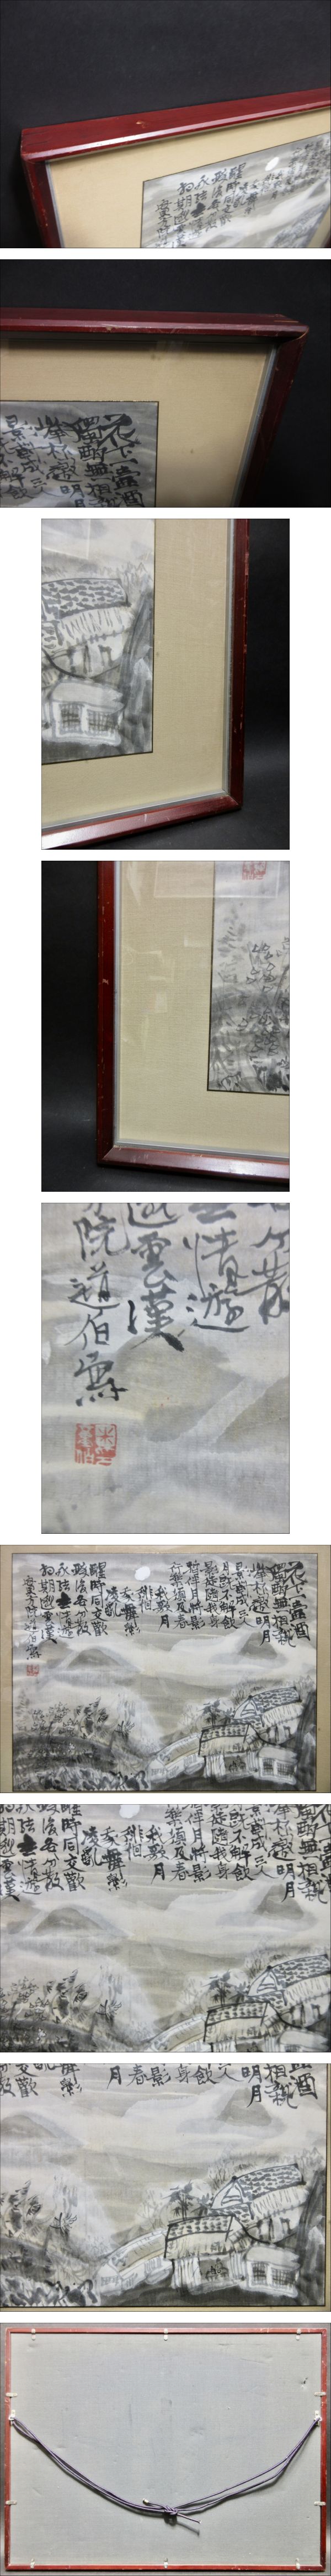 花下壺酒
獨酌無相親
舉杯邀明月
成三人
既不解飲
影徒隨我身
暫伴月將影
行樂須及春
我歌月
徘徊
我舞影
凌亂
醒時同交歡
醉後各分散
永結无情遊
相期邈雲漢
院道伯寫